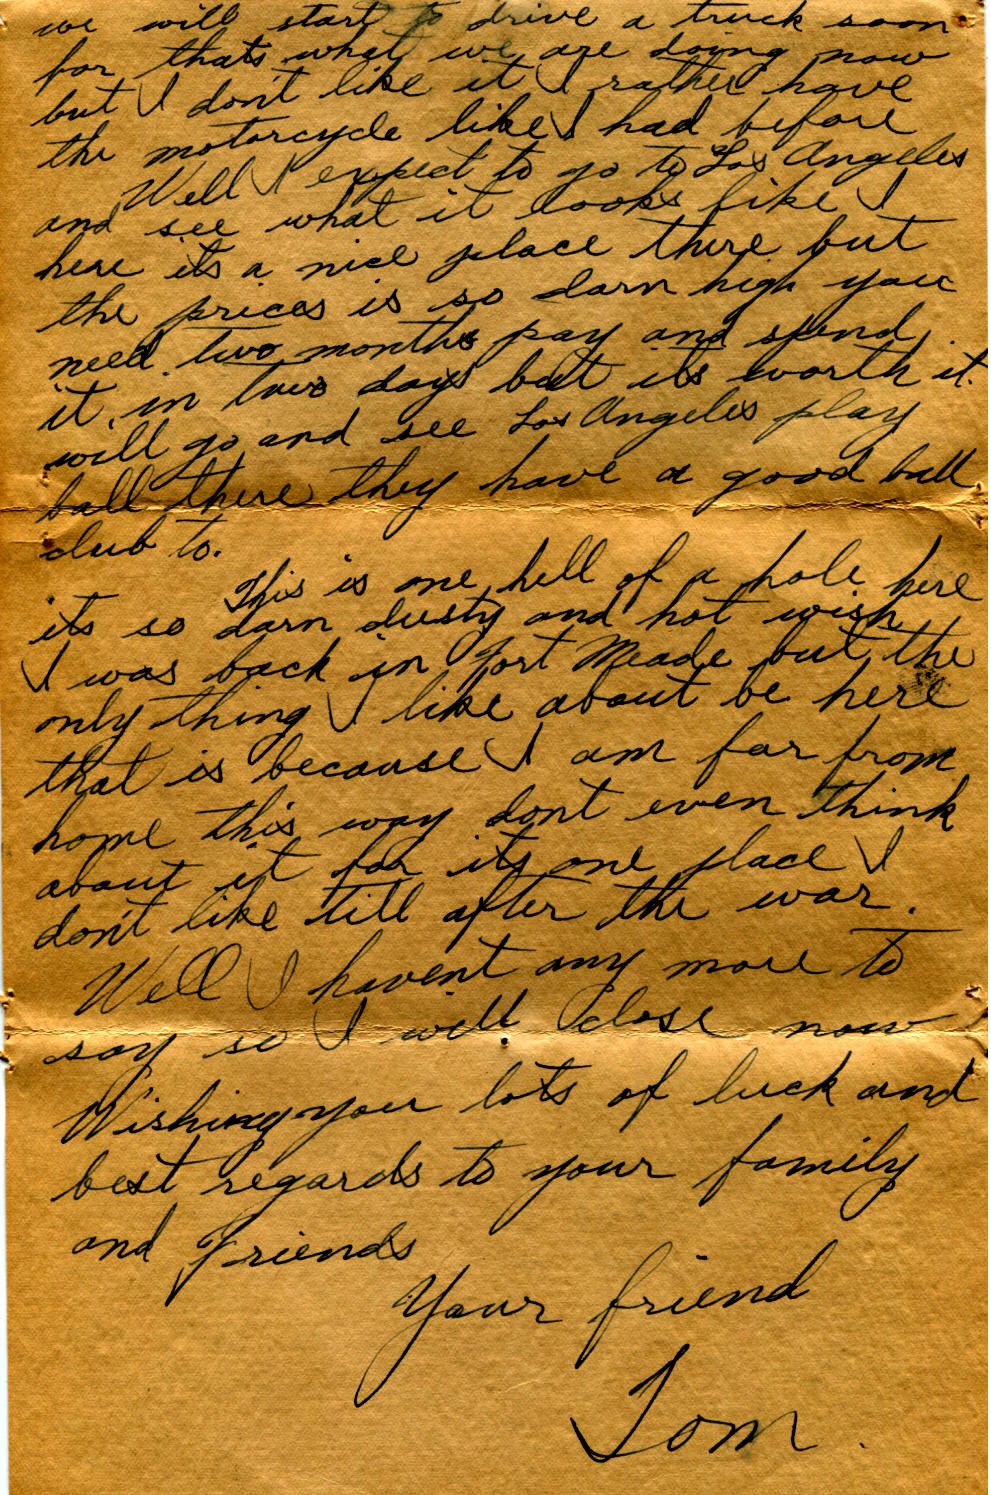 we will start to drive a truck soon
for thats what we are doing now
but I don't like it I rather have
the motorcycle like I had before
Well I expect to go to Los Angeles
and see what it looks like I
hear its a nice place there but
the prices is so darn high you
need two months pay and spend
it in two days but its worth it.
will go and see Los Angeles play
ball there they have a good ball
club to.
This is one hell of a hole here
its so darn dusty and hot wish
I was back in Fort Meade but the
only thing I like about be here
that is because I am far from
home this way dont even think
about it for its one place I
don't like till after the war.
Well I havent any more to
say so I will close now
Wishing you lots of luck and
best regards to your family
and Friends
Your friend
Tom.